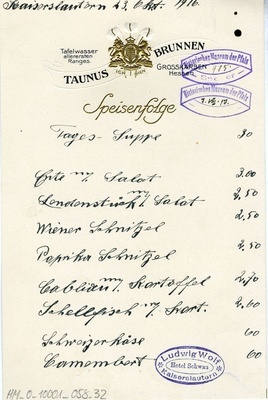 Kaiserslautern 23. Okt. 1916.
Tafelwasser
allerersten
Ranges.
TAUNUS BRUNNEN
GROSSKARBEN
Hessen
Historisches Museum der Pfalz
Speyer
Historisches Museum der Pfalz
Speisenfolge
Tages-Suppe 30
Ente m/ Salat 3.00
Lendenstück m/ Salat 2,50
Wiener Schnitzel 2,50
Paprika Schnitzel 2,50
Cabliau m/ Kartoffel 2,70
Schellfisch m/ Kart. 2.60
Schweizerkäse 60
Camembert 60
Ludwig Wolf
Hotel Schwan
Kaiserslautern
HM_0_10001_058.32